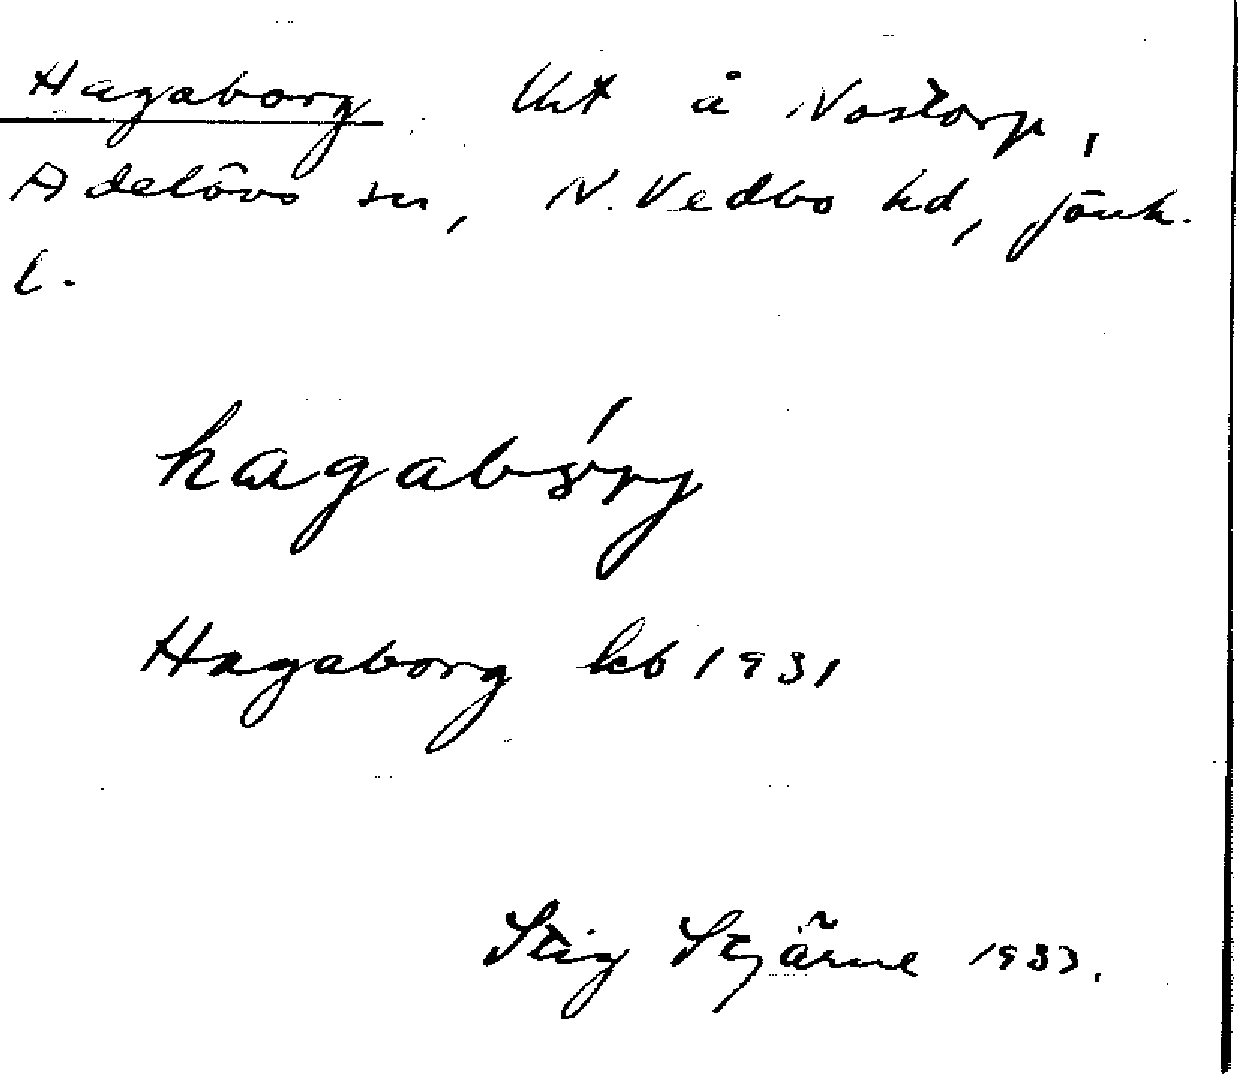 Hagaborg. Lht å Nostorp,
Adelövs sn, N. Vedbo hd, Jönk.
l.
hagabórj
Hagaborg kb 1931
Stig Stjärne 1933.